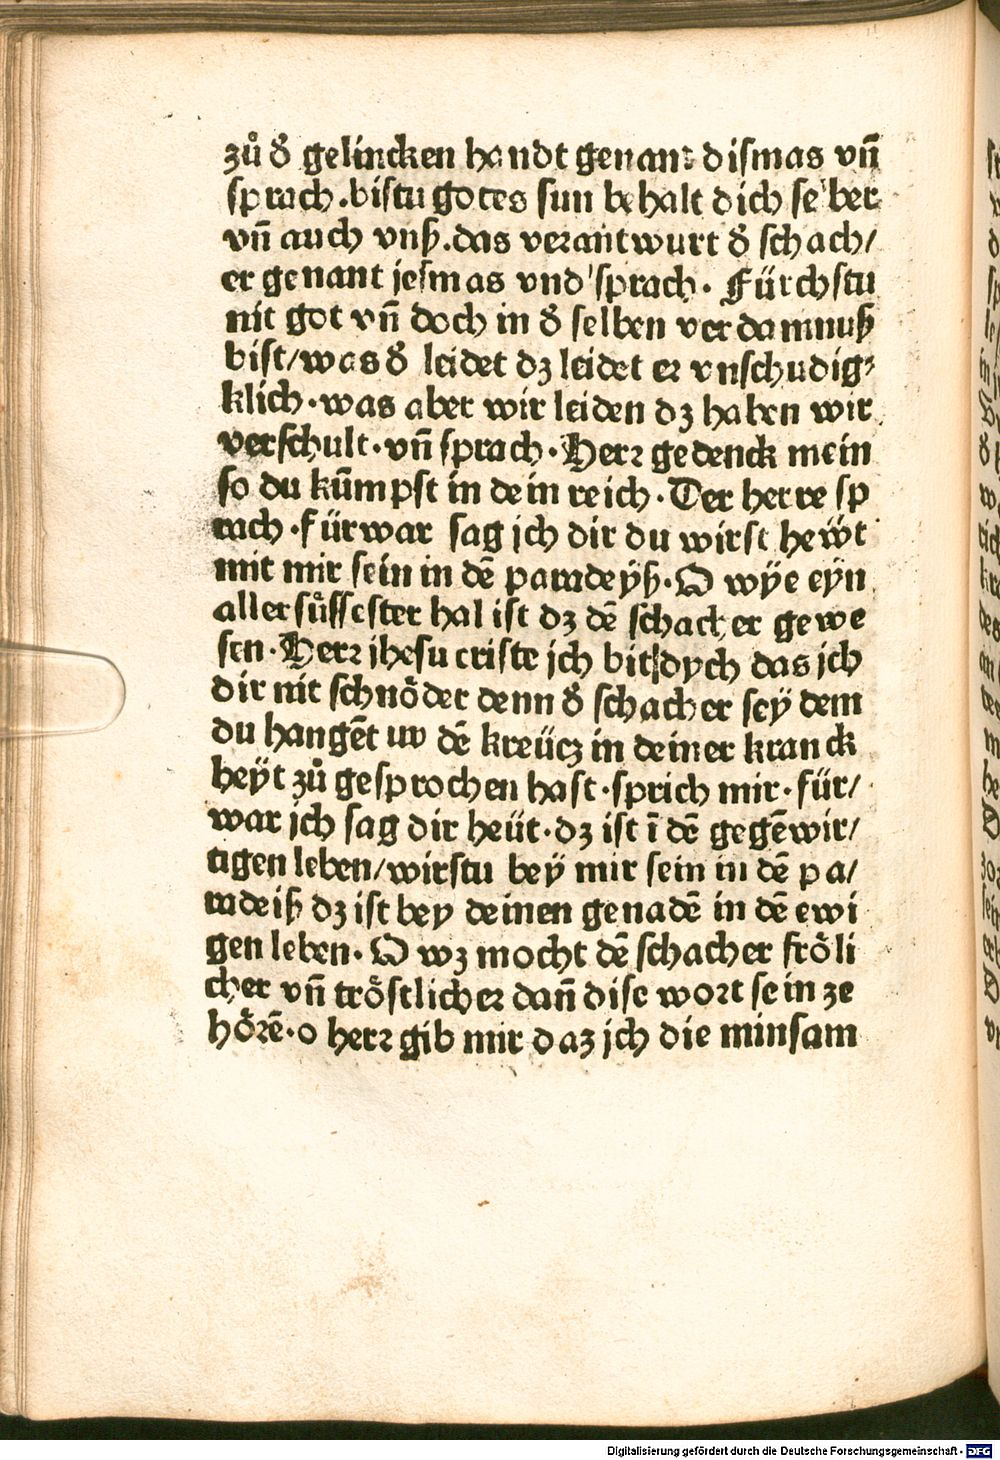 zů đ gelincken handt genant dismas vn̄
sprach.bistu gotes sun behalt dich selber
vn̄ auch vnß.das verantwurt đ schach/
er genant jesmas vnd sprach. Fürchstu
nit got vn̄ doch in đ selben verdamnuß
bist/was đ leidet dz leidet er vnschudig⸗
klich.was aber wir leiden dz haben wir
verschult.vn̄ sprach.Herr gedenck mein
so du kūmpst in dein reich.Der herre sp
rach.fürwar sag jch dir du wirst heẅt
mit mir sein in dē paradeÿß.O wÿe eyn
aller sůssester hal ist dz dē schacher gewe
sen.Herr jhesu criste jch bit dych das jch
dir nit schnöder denn đ schacher seÿ dem
du hangēt an dē kreücz in deiner kranck
heÿt zů gesprochen hast.sprich mir.für/
war jch sag dir heüt.dz ist ī dē gegēwir/
tigen leben/wirstu beÿ mir sein in dē pa/
radeiß dz ist bey deinen genadē in dē ewi
gen leben.O wz mocht dē schacher fröli
cher vn̄ tröstlicher dan̄ dise wort sein ze
hörē.o herr gib mir daz jch die minsam
Digitalisierung gefördert durch die Deutsche Forschungsgemeinschaft - DFG